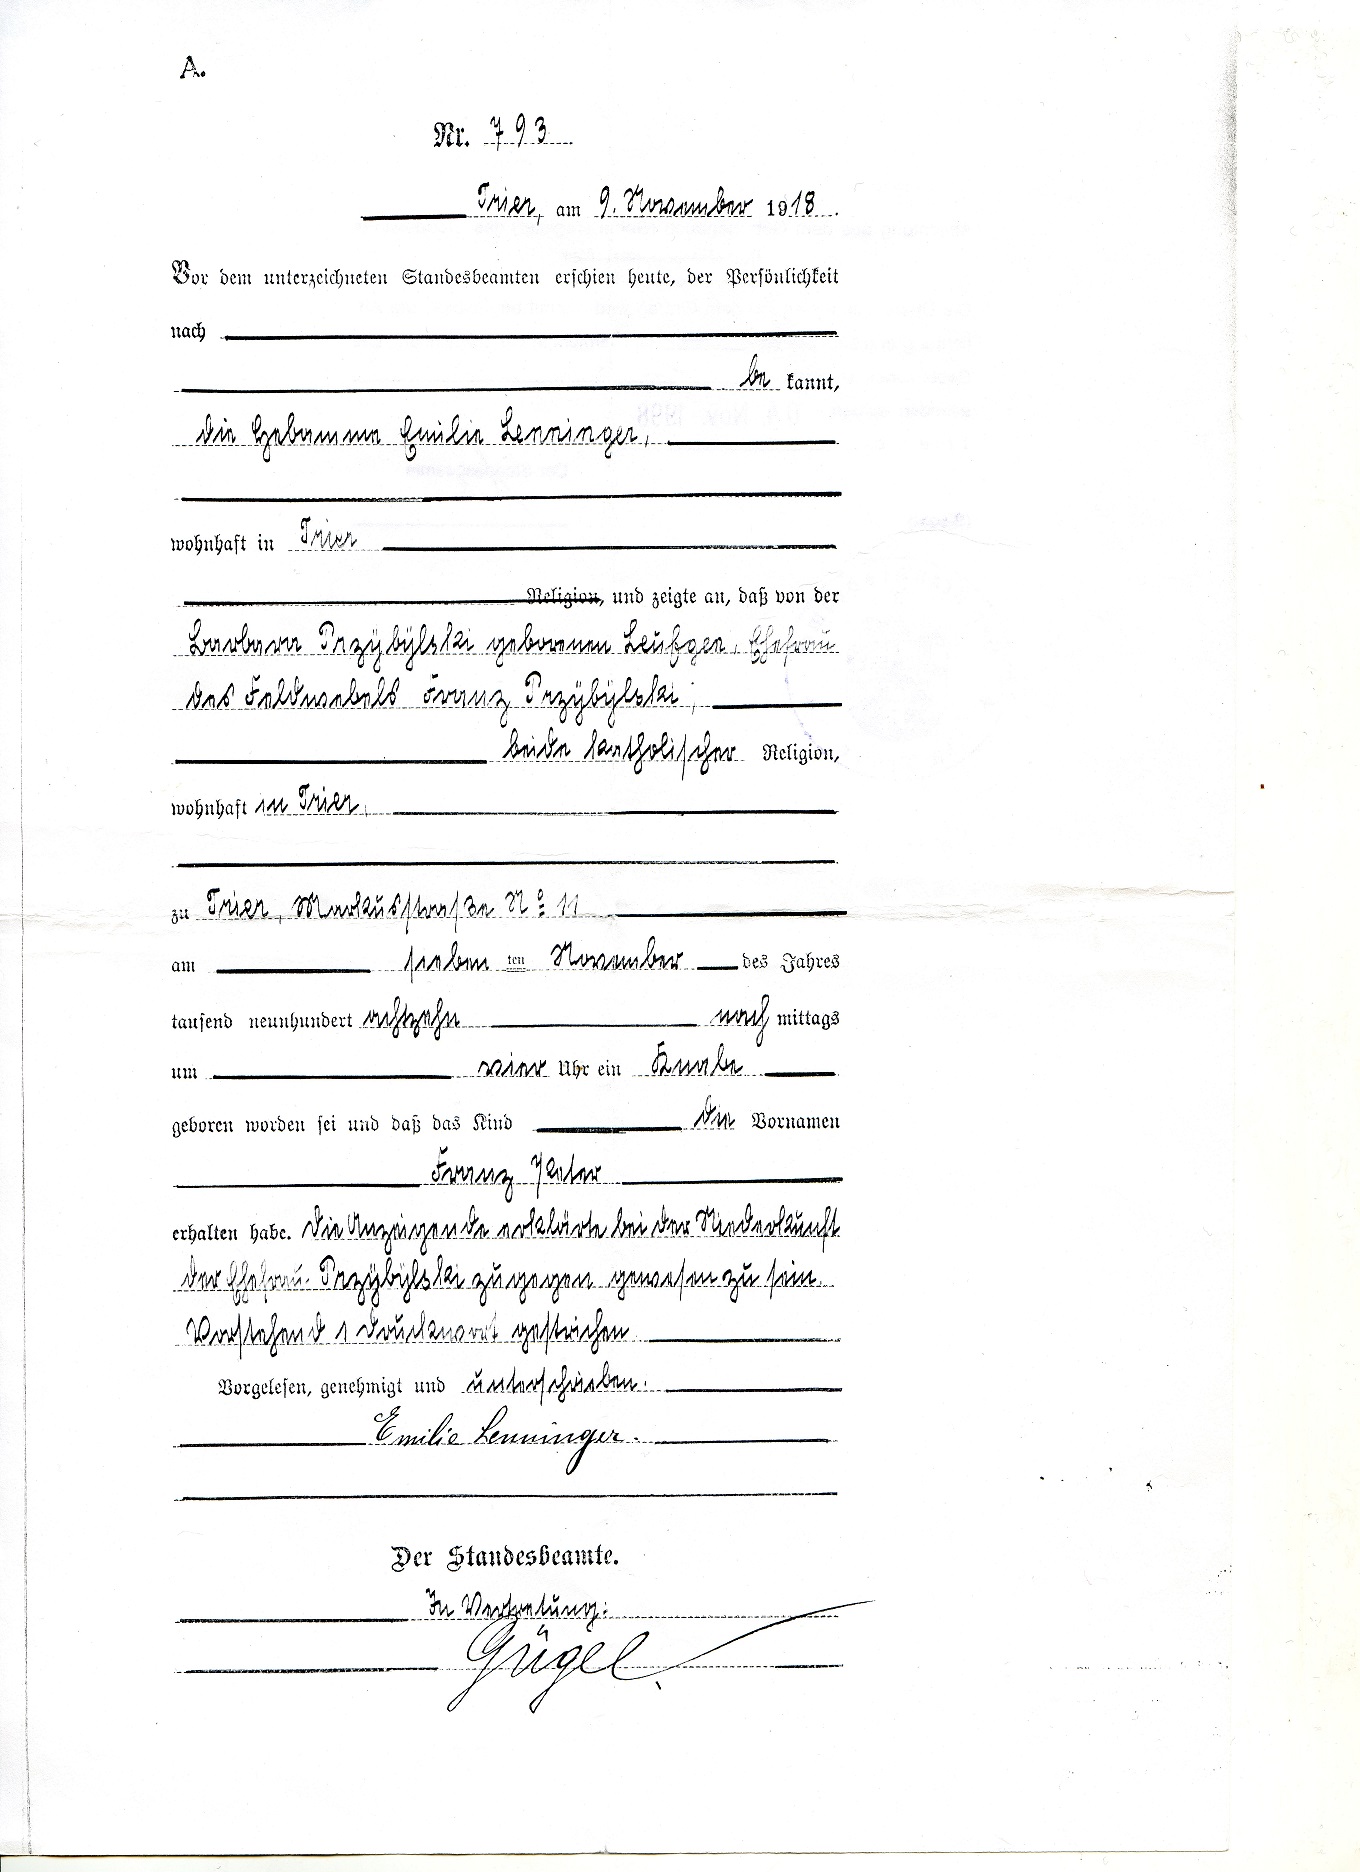 A.
Nr. 793
Trier, am 9. November 1918.
Vor dem unterzeichneten Standesbeamten erschien heute, der Persönlichkeit
nach
be kannt,
die Hebamme Emilie Lenninger,
wohnhaft in Trier
Religion, und zeigte an, daß von der
Barbara Przÿbÿlski geborenen Ehefrau
des Feldwebels Franz Przÿbÿlski,
beide katholischer Religion,
wohnhaft in Trier,
zu Trier, Markusstraße No 11
am sieben ten November des Jahres
tausend neunhundert achtzehn nach mittags
um vier Uhr ein Knabe
geboren worden sei und daß das Kind die Vornamen
Franz Peter
erhalten habe. Die Anzeigende erklärte bei der Niederkunft
der Ehefrau Przÿbÿlski zugegen gewesen zu sein.
Vorstehend 1 Druckwort gestrichen
Vorgelesen, genehmigt und unterschrieben.
Emilie Lenninger.
Der Standesbeamte.
In Vertretung:
Gügel